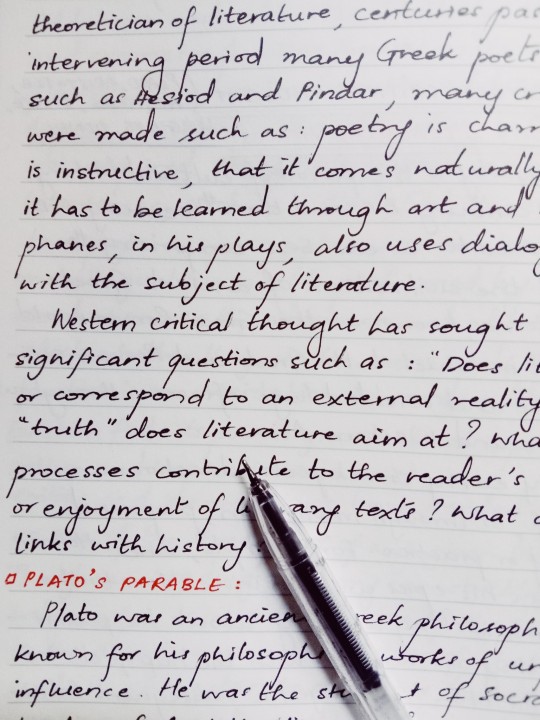 theoretician of literature, centuries pas
intervening period many Greek poets
such as Hesiod and Pindar, many cr
were made such as : poetry is charm
is instructive, that it comes naturally
it has to be learned through art and
phanes, in his plays, also uses dialo
with the subject of literature.
Western critical thought has sought
significant questions such as : "Does lit
or correspond to an external reality
"truth" does literature aim at ? Wha
processes contribute to the reader's
or enjoyment of texts ? What
links with history
PLATO'S PARABLE :
Plato was an ancien reek philosoph
known for his philosoph works of un
influence. He was the st t of Socr